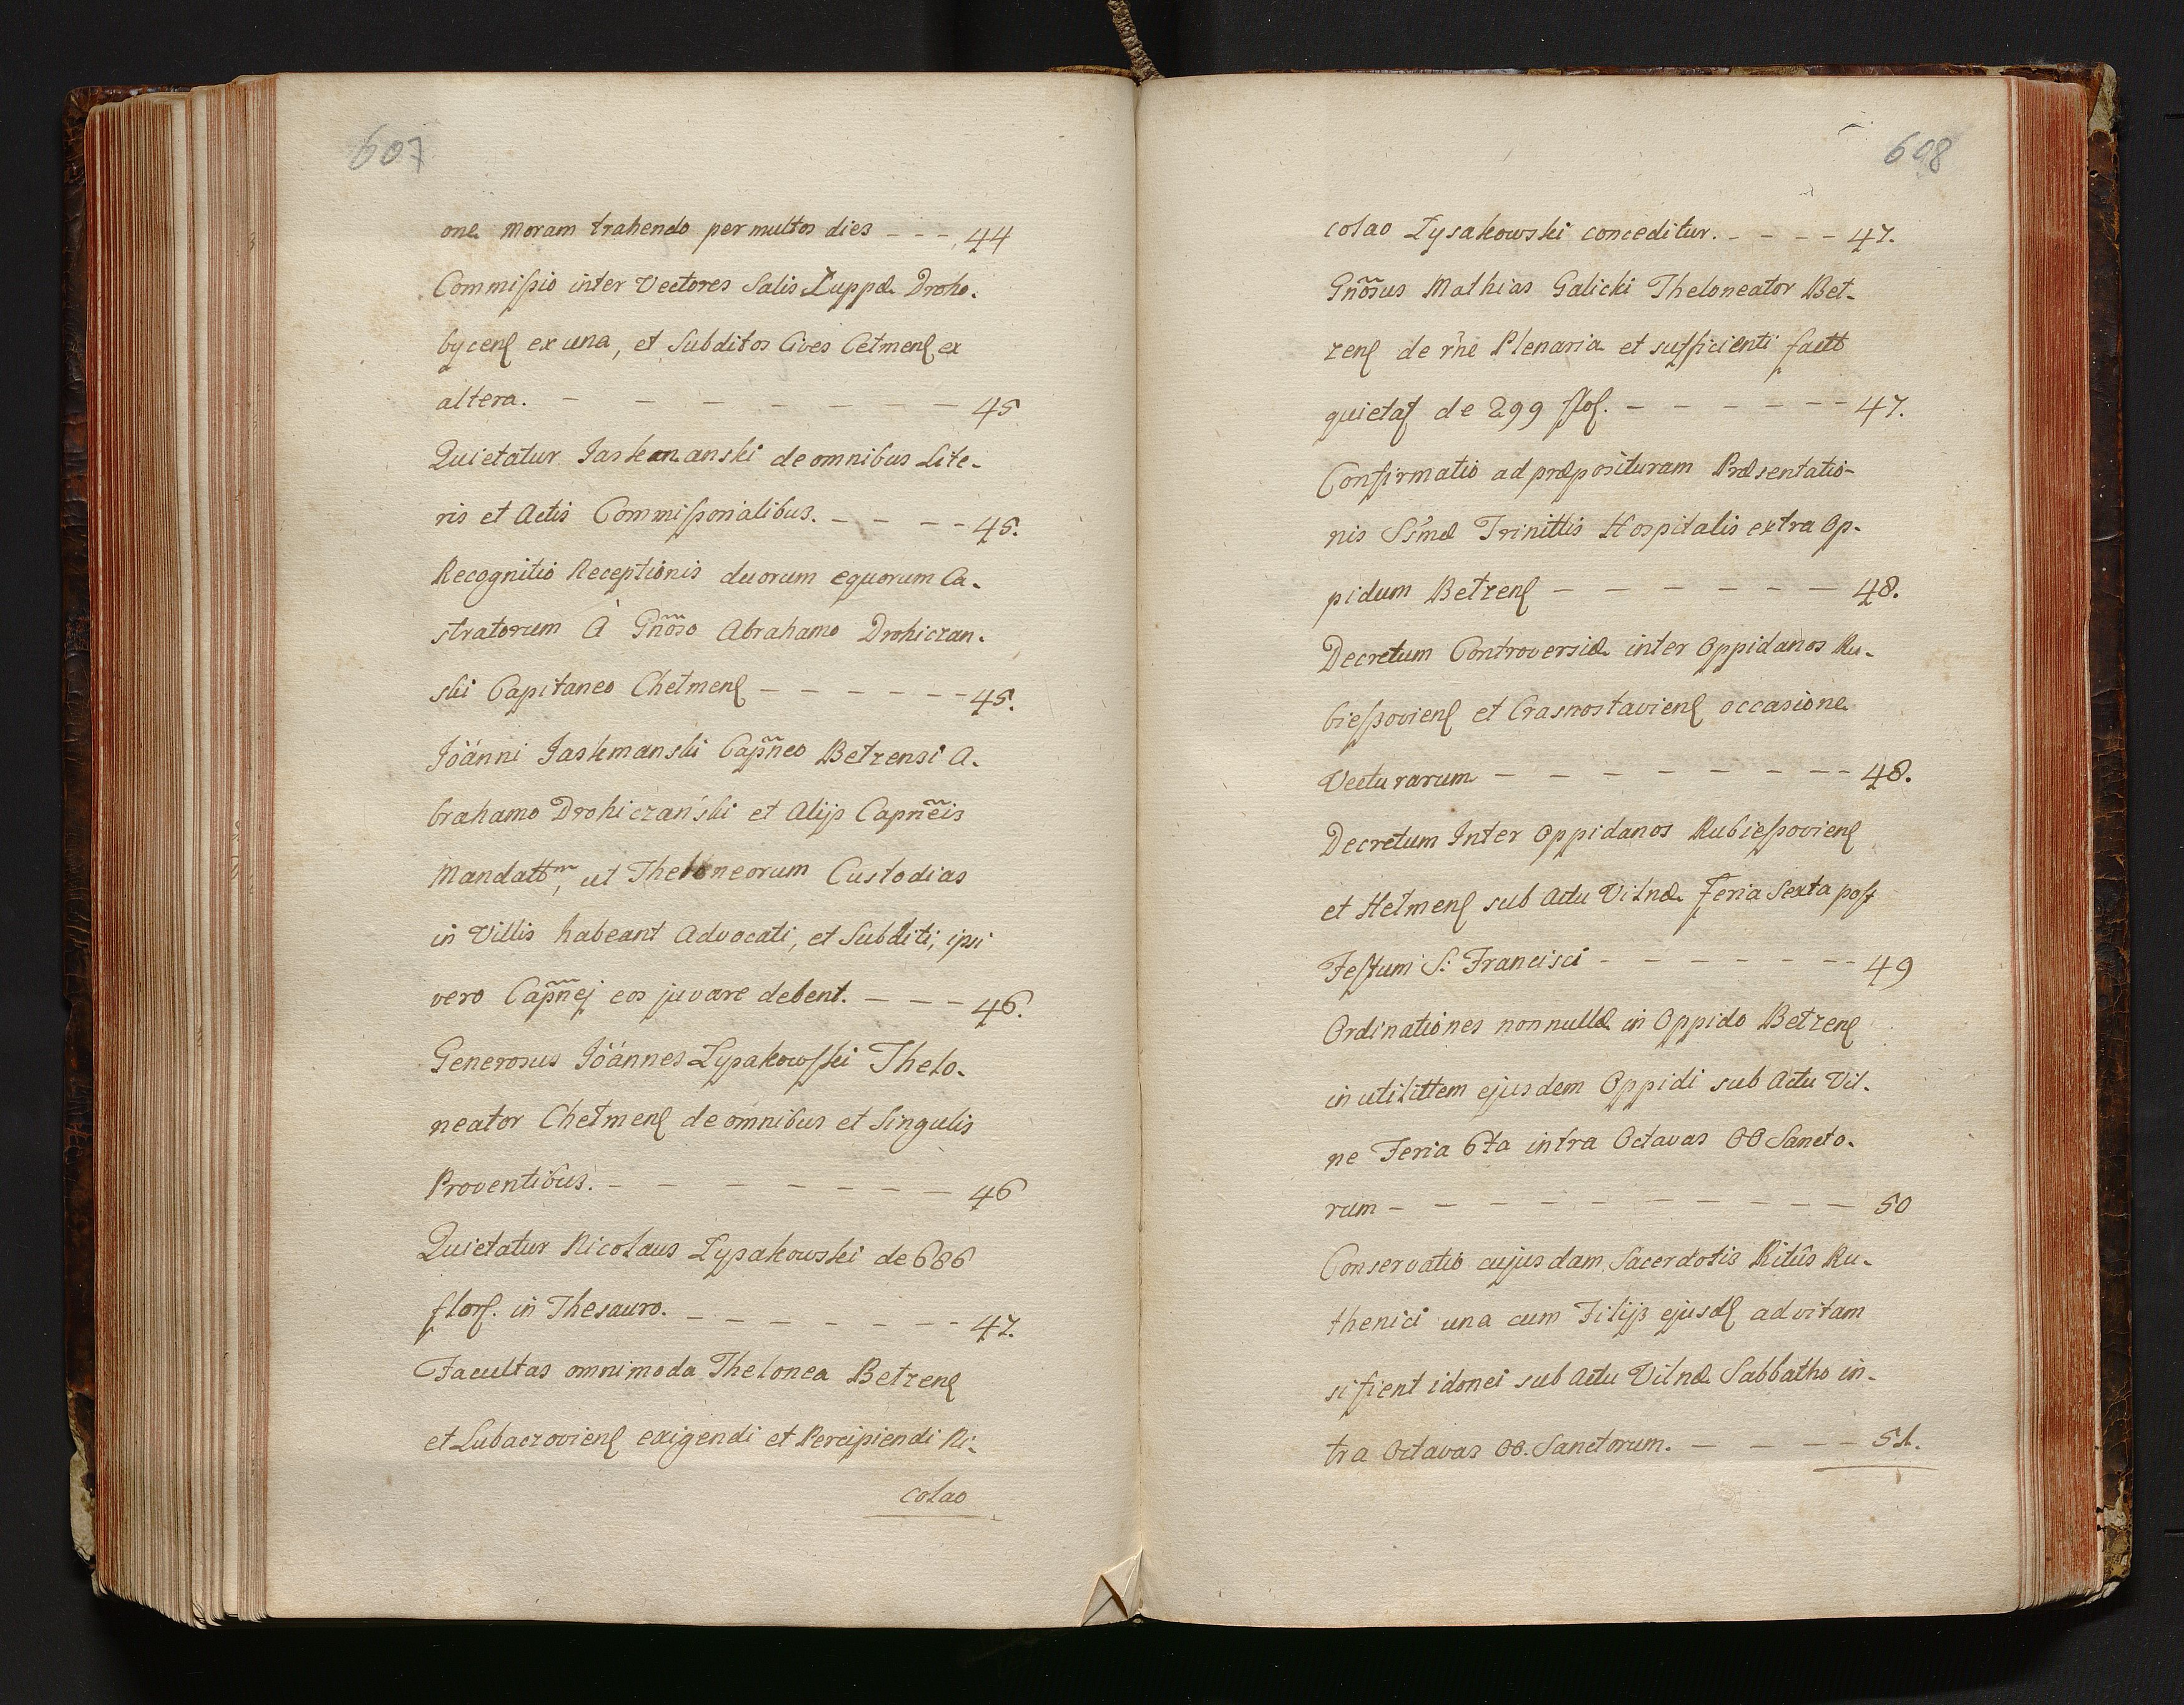 607
one moram trahendo per multos dies - - - 44
Commissio inter Vectores Salis Zuppæ Droho-
bycens ex una, et Subditos Cives Cełmens ex
altera. - - - - - - - 45
Quietatur Jaskmanski de omnibus Lite-
ris et Actis Commissionalibus. - - - - 45.
Recognitio Receptionis duorum equorum Ca-
stratorum à Gñoso Abrahamo Drohiczan-
ski Capitaneo Chełmens - - - - - - 45.
Joánni Jaskmanski Capñeo Bełzensi A-
brahamo Drohiczański et Alijs Capñeis
Mandattm, ut Theloneorum Custodias
in Villis habeant Advocati, et Subditi, ipsi
vero Capñej eos juvare debent. - - - 46.
Generosus Joánnes Łysakowski Thelo-
neator Chełmens de omnibus et Singulis
Proventibus. - - - - - - - 46
Quietatur Nicolaus Łysakowski de 686
flors. in Thesauro. - - - - - - 47.
Facultas omnimoda Thelonea Bełzens
et Lubaczoviens exigendi et Percipiendi Ni-
colao
608
colao Łysakowski conceditur. - - - - 47.
Gñosus Mathias Galicki Theloneator Beł-
zens de rñe Plenaria et sufficienti factt
quietat de 299 flos. - - - - - - 47.
Confirmatio ad præposituram Præsentatio-
nis Ssmæ Trinittis Hospitalis extra Op-
pidum Bełzens - - - - - - 48.
Decretum Controversiæ inter Oppidanos Ru-
biessoviens et Crasnostaviens occasione
Vecturarum - - - - - - - - 48.
Decretum Inter Oppidanos Rubiessoviens
et Hełmens sub Actu Vilnæ Feria Sexta post
Festum S: Francisci - - - - - - - 49
Ordinationes nonnullæ in Oppido Bełzens
in utilittem ejusdem Oppidi sub Actu Vil-
ne Feria 6ta intra Octavas OO Sancto-
rum - - - - - - - - - - 50
Conservatio cujusdam Sacerdotis Ritûs Ru-
thenici una cum Filijs ejusd ad vitam
si fient idonei sub Actu Vilnæ Sabbatho in-
tra Octavas OO. Sanctorum. - - - - 51.